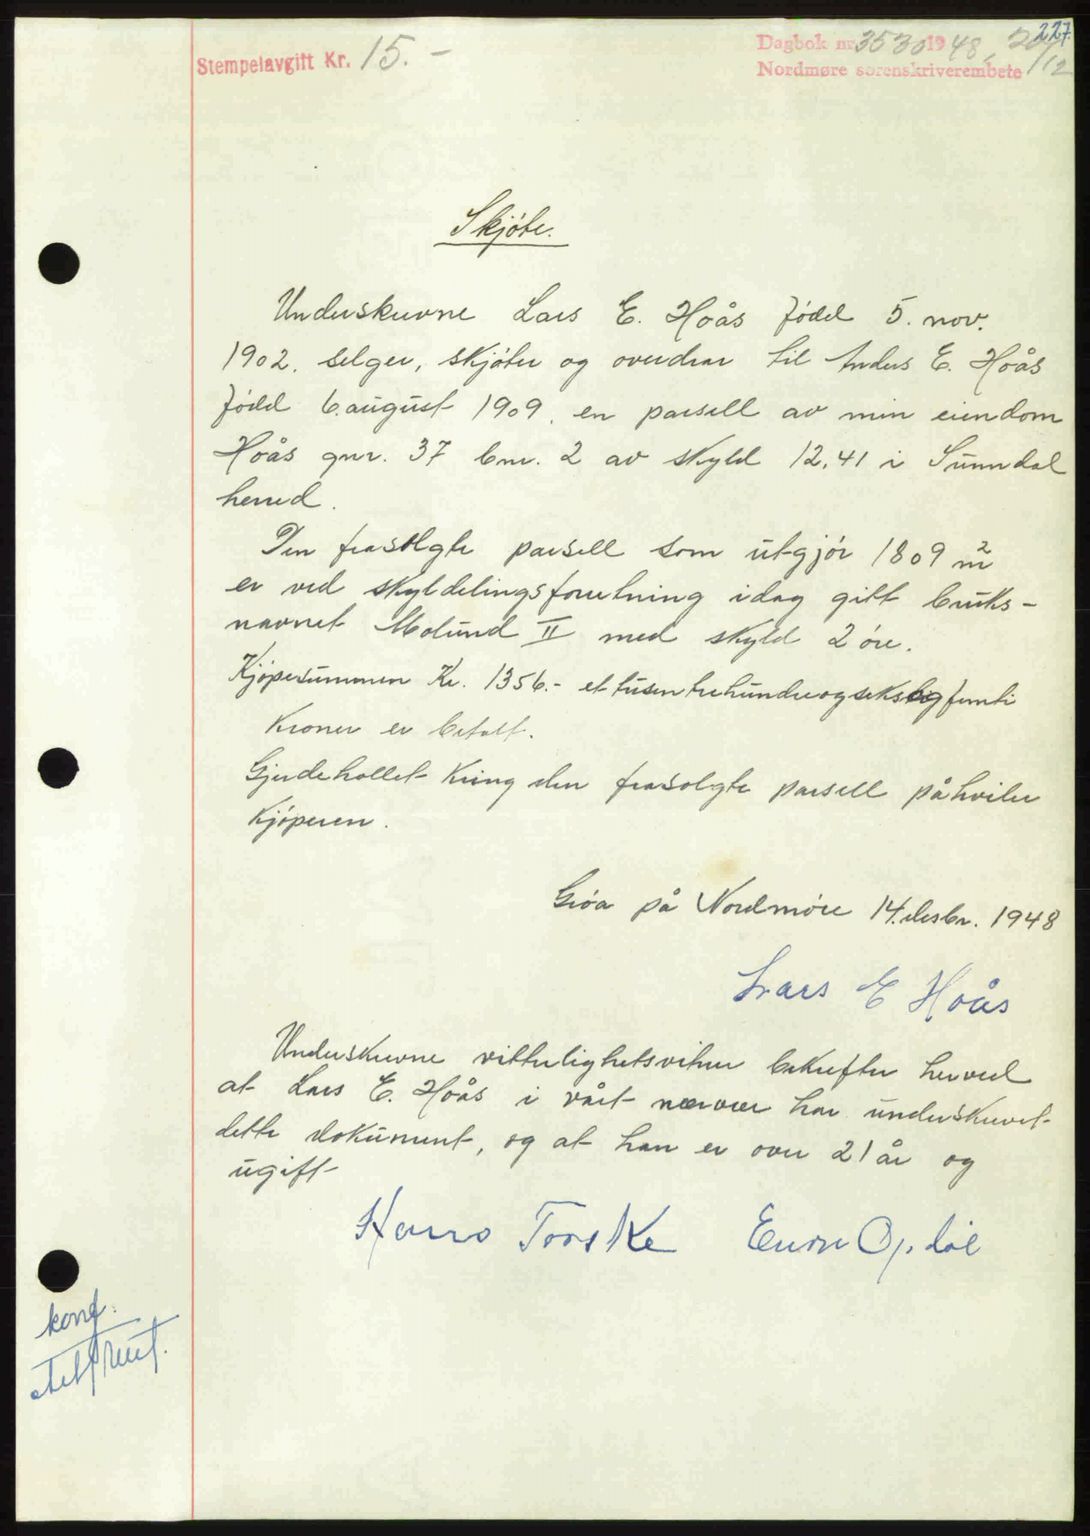 227.
Stempelavgift Kr. 15.-
Dagbok nr. 3530 1948, 20/12
Nordmøre sorenskriverembete
Skjøte.
Underskrevne Lars E. Hoås født 5. nov.
1902. selger, skjøter og overdrar til Anders E. Hoås
født 6. august 1909. en parsell av min eiendom
Hoås gnr. 37 bnr. 2 av skyld 12,41 i Sunndal
herred.
Den frasolgte parsell som utgjør 1809 m²
er ved skyldelingsforretning idag gitt bruks-
navnet Molund II med skyld 2 øre.
Kjøpesummen Kr. 1356.- et tusen trehundreogseksogfemti
Kroner er betalt.
Gjerdeholdet kring den frasolgte parsell påhviler
kjøperen.
Grøa på Nordmøre 14. desbr. 1948
Lars E Hoås
Underskrevne vitterlighetsvitner bekrefter herved
at Lars E. Hoås i vårt nærvær har underskrevet
dette dokument, og at han er over 21 år og
ugift
Hans Torske Einar Opdøl
konf.